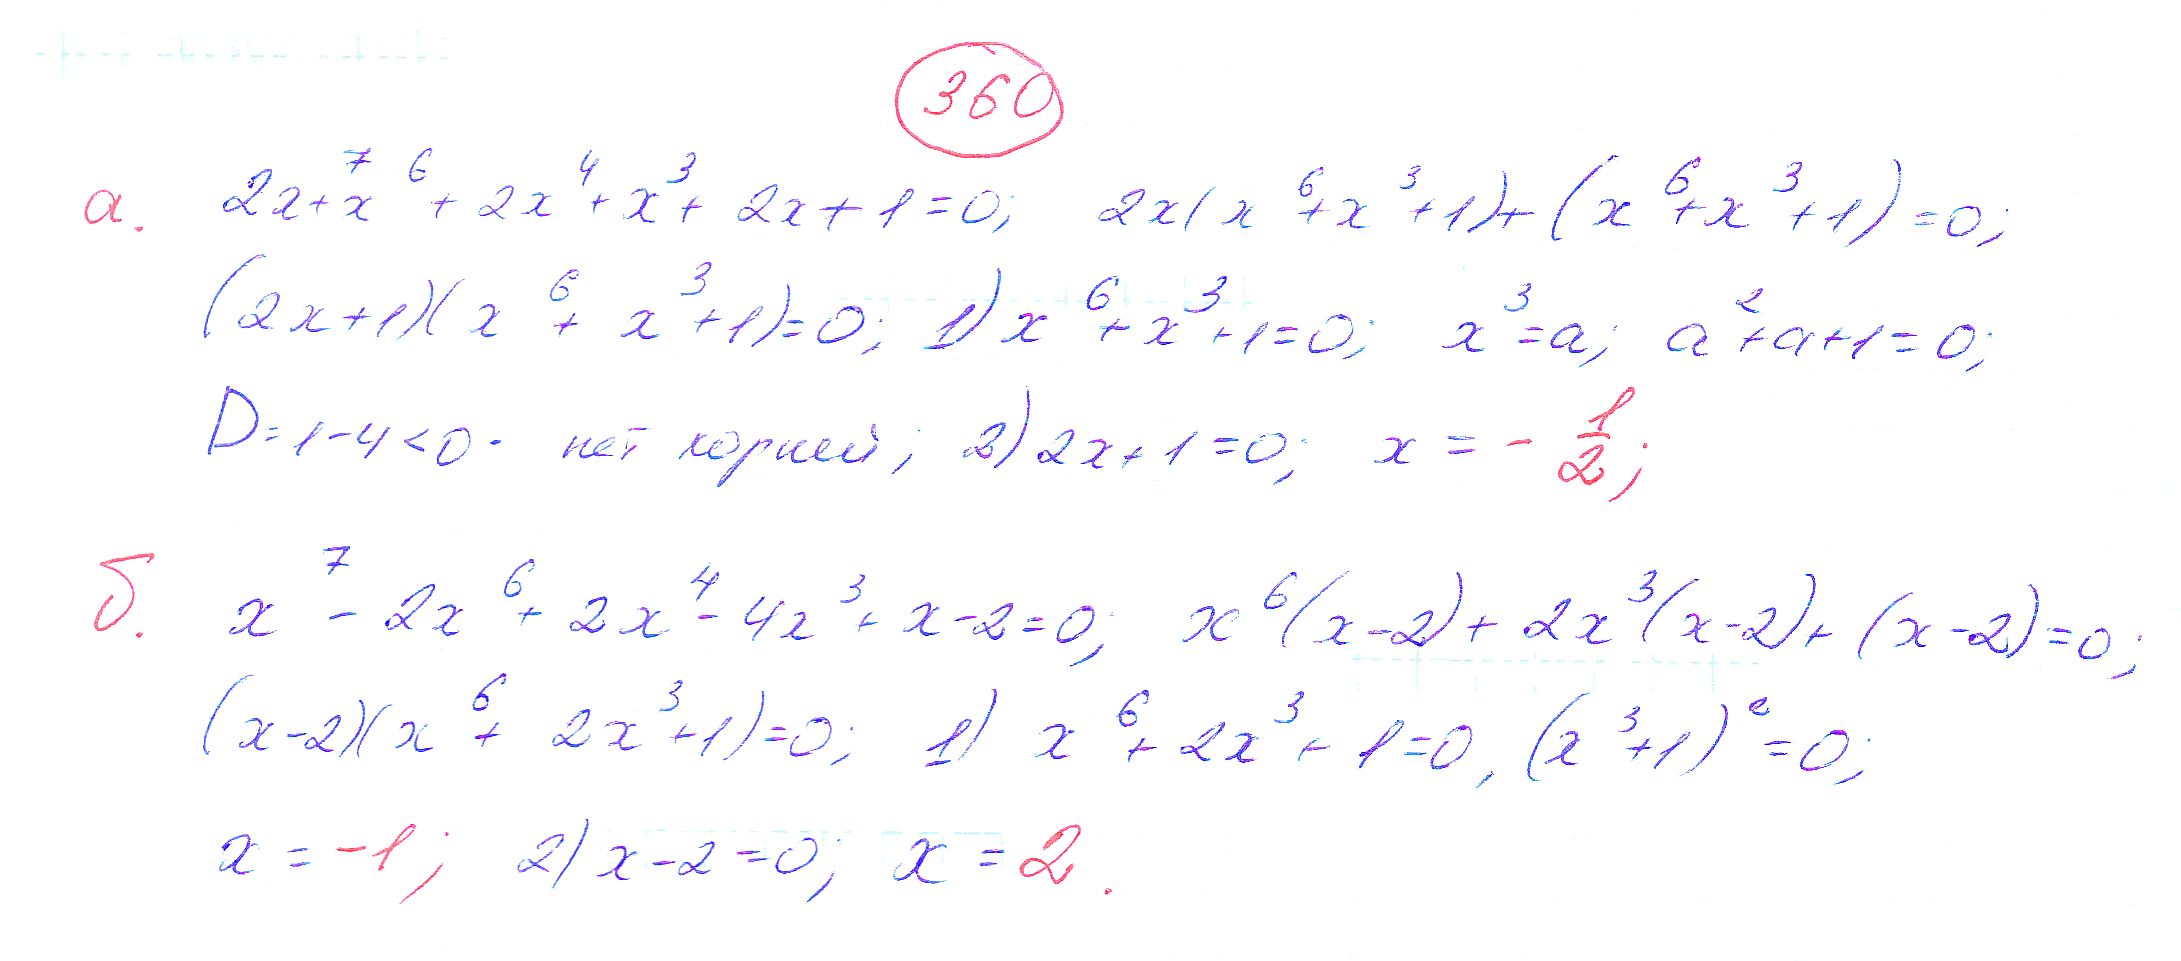 360
а. 2x⁷+x⁶+2x⁴+x³+2x+1=0; 2x(x⁶+x³+1)+(x⁶+x³+1)=0;
(2x+1)(x⁶+x³+1)=0; 1) x⁶+x³+1=0; x³=a; a²+a+1=0;
D=1-4<0- нет корней; 2) 2x+1=0; x=-1/2;
б. x⁷-2x⁶+2x⁴-4x³+x-2=0; x⁶(x-2)+2x³(x-2)+(x-2)=0;
(x-2)(x⁶+2x³+1)=0; 1) x⁶+2x³+1=0, (x³+1)²=0;
x=-1; 2) x-2=0; x=2.